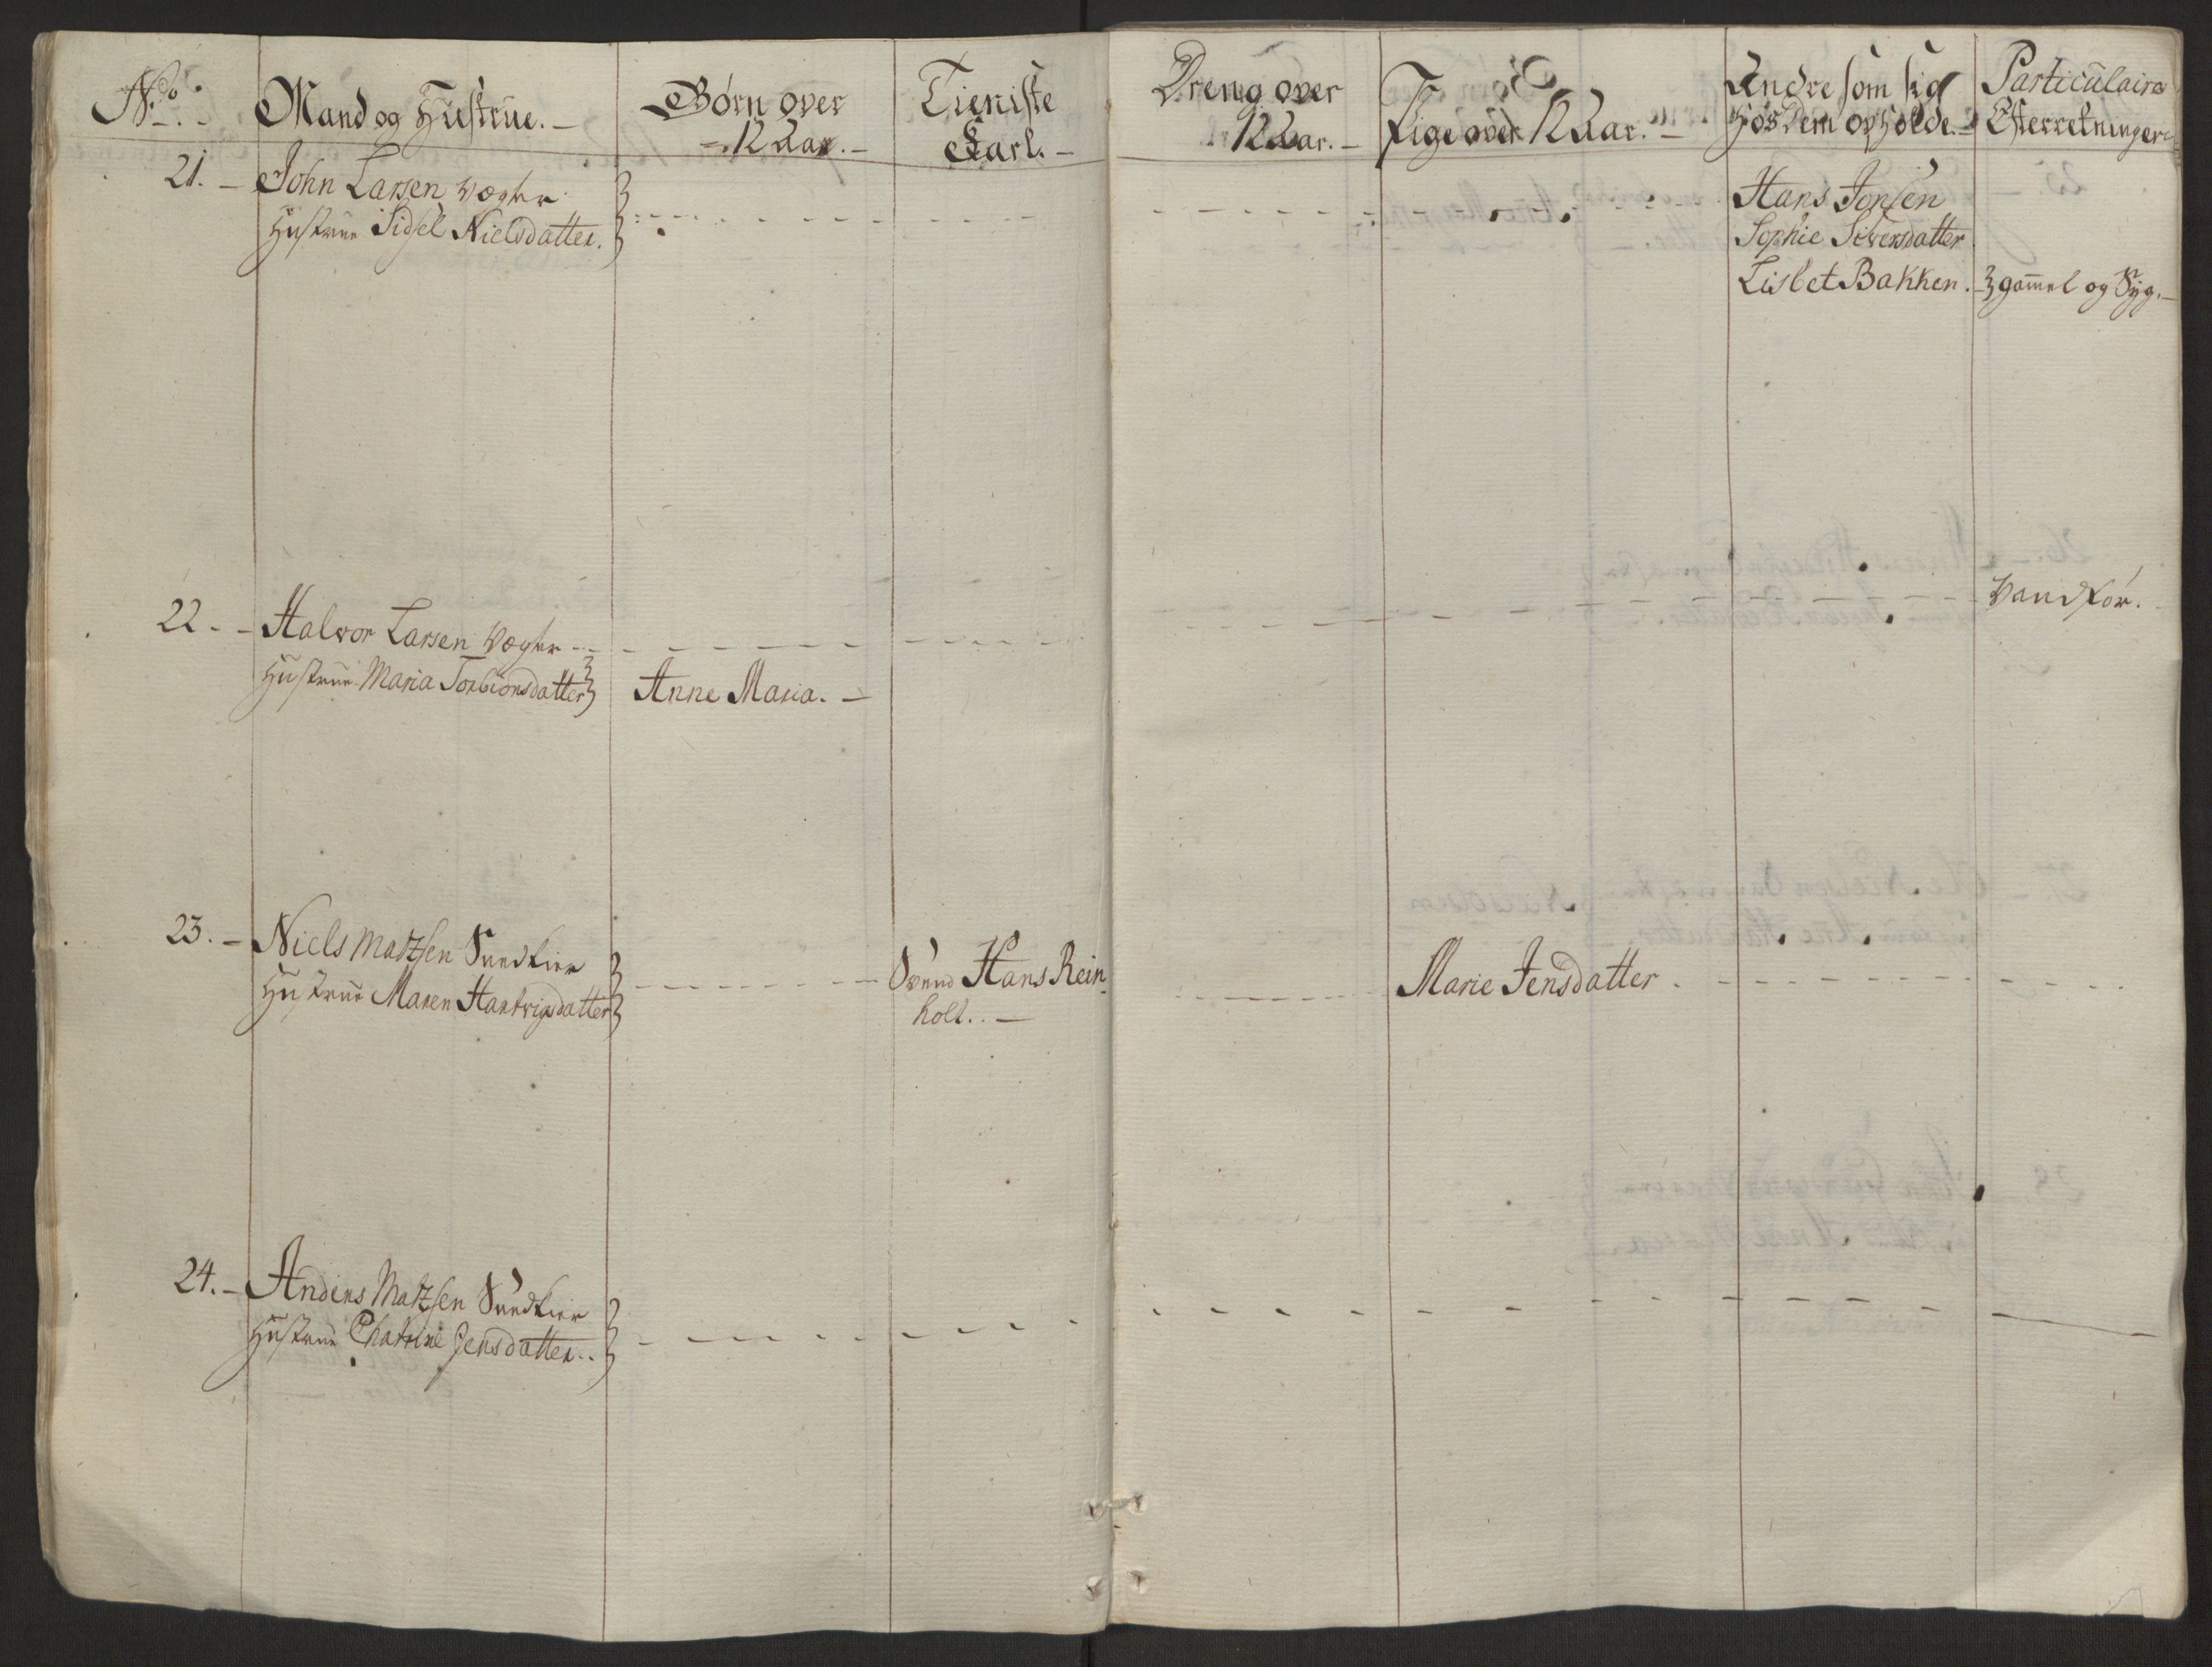 No.
Mand og Hustrue.
Børn over
12 Aar.
Tieniste
Karl.
Dreng over
12 Aar.
Pige over 12 Aar.
Andre som sig
hos Dem opholde.
Particulaire
Efterretninger
21. John Larsen Vægter
Hustrue Sidsel Nielsdatter.
Hans Jonsen
Sophie Siversdatter
Lisbet Bakken. gammel og Syg.
22. Halvor Larsen Vægter
Vandfør.
Hustrue Maria Torbionsdatter Anne Maria.
23. Niels Matzsen Sundkier
Hustrue Maren Hartvigsdatter
Svend Hans Rein
holt.
Marie Jensdatter
24. Anders Matzsen Sundkier
Hustrue Chatrine Jensdatter